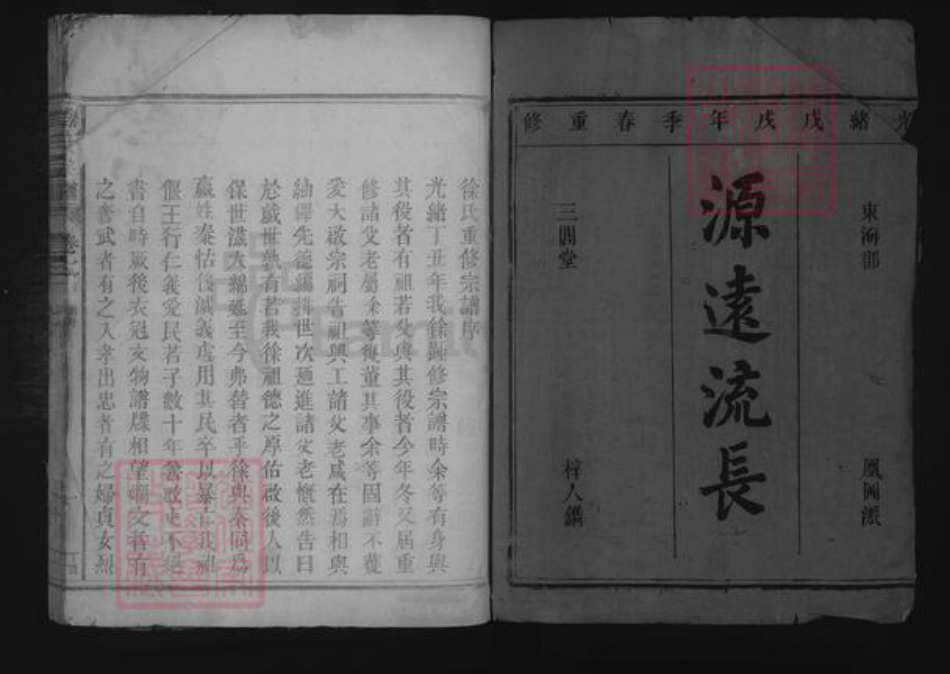 光緒戊戌年季春重修
東海郡 鳳岡派
源遠流長
三園堂 梓人鐫
徐氏重修宗譜序
光緒丁丑年我徐歸修宗譜時余等有身與
其役者有祖若父與其役者今年冬又屆重
修諸父老屬余等復董其事余等固辭不獲
爰大啟宗祠告祖興工諸父老咸在焉相與
紬繹先德編排世次迺進諸父老慨然告曰
於戲世孰有若我徐祖德之厚佑啟後人以
保世滋大綿延至今弗替者乎徐與秦同為
嬴姓秦怙後滅義虐用其民卒以暴亡我祖
偃王行仁義愛民若子數十年
書自時厥後衣冠文物譜牒相望文者有
之善武者有之入孝出忠者有之婦貞女烈